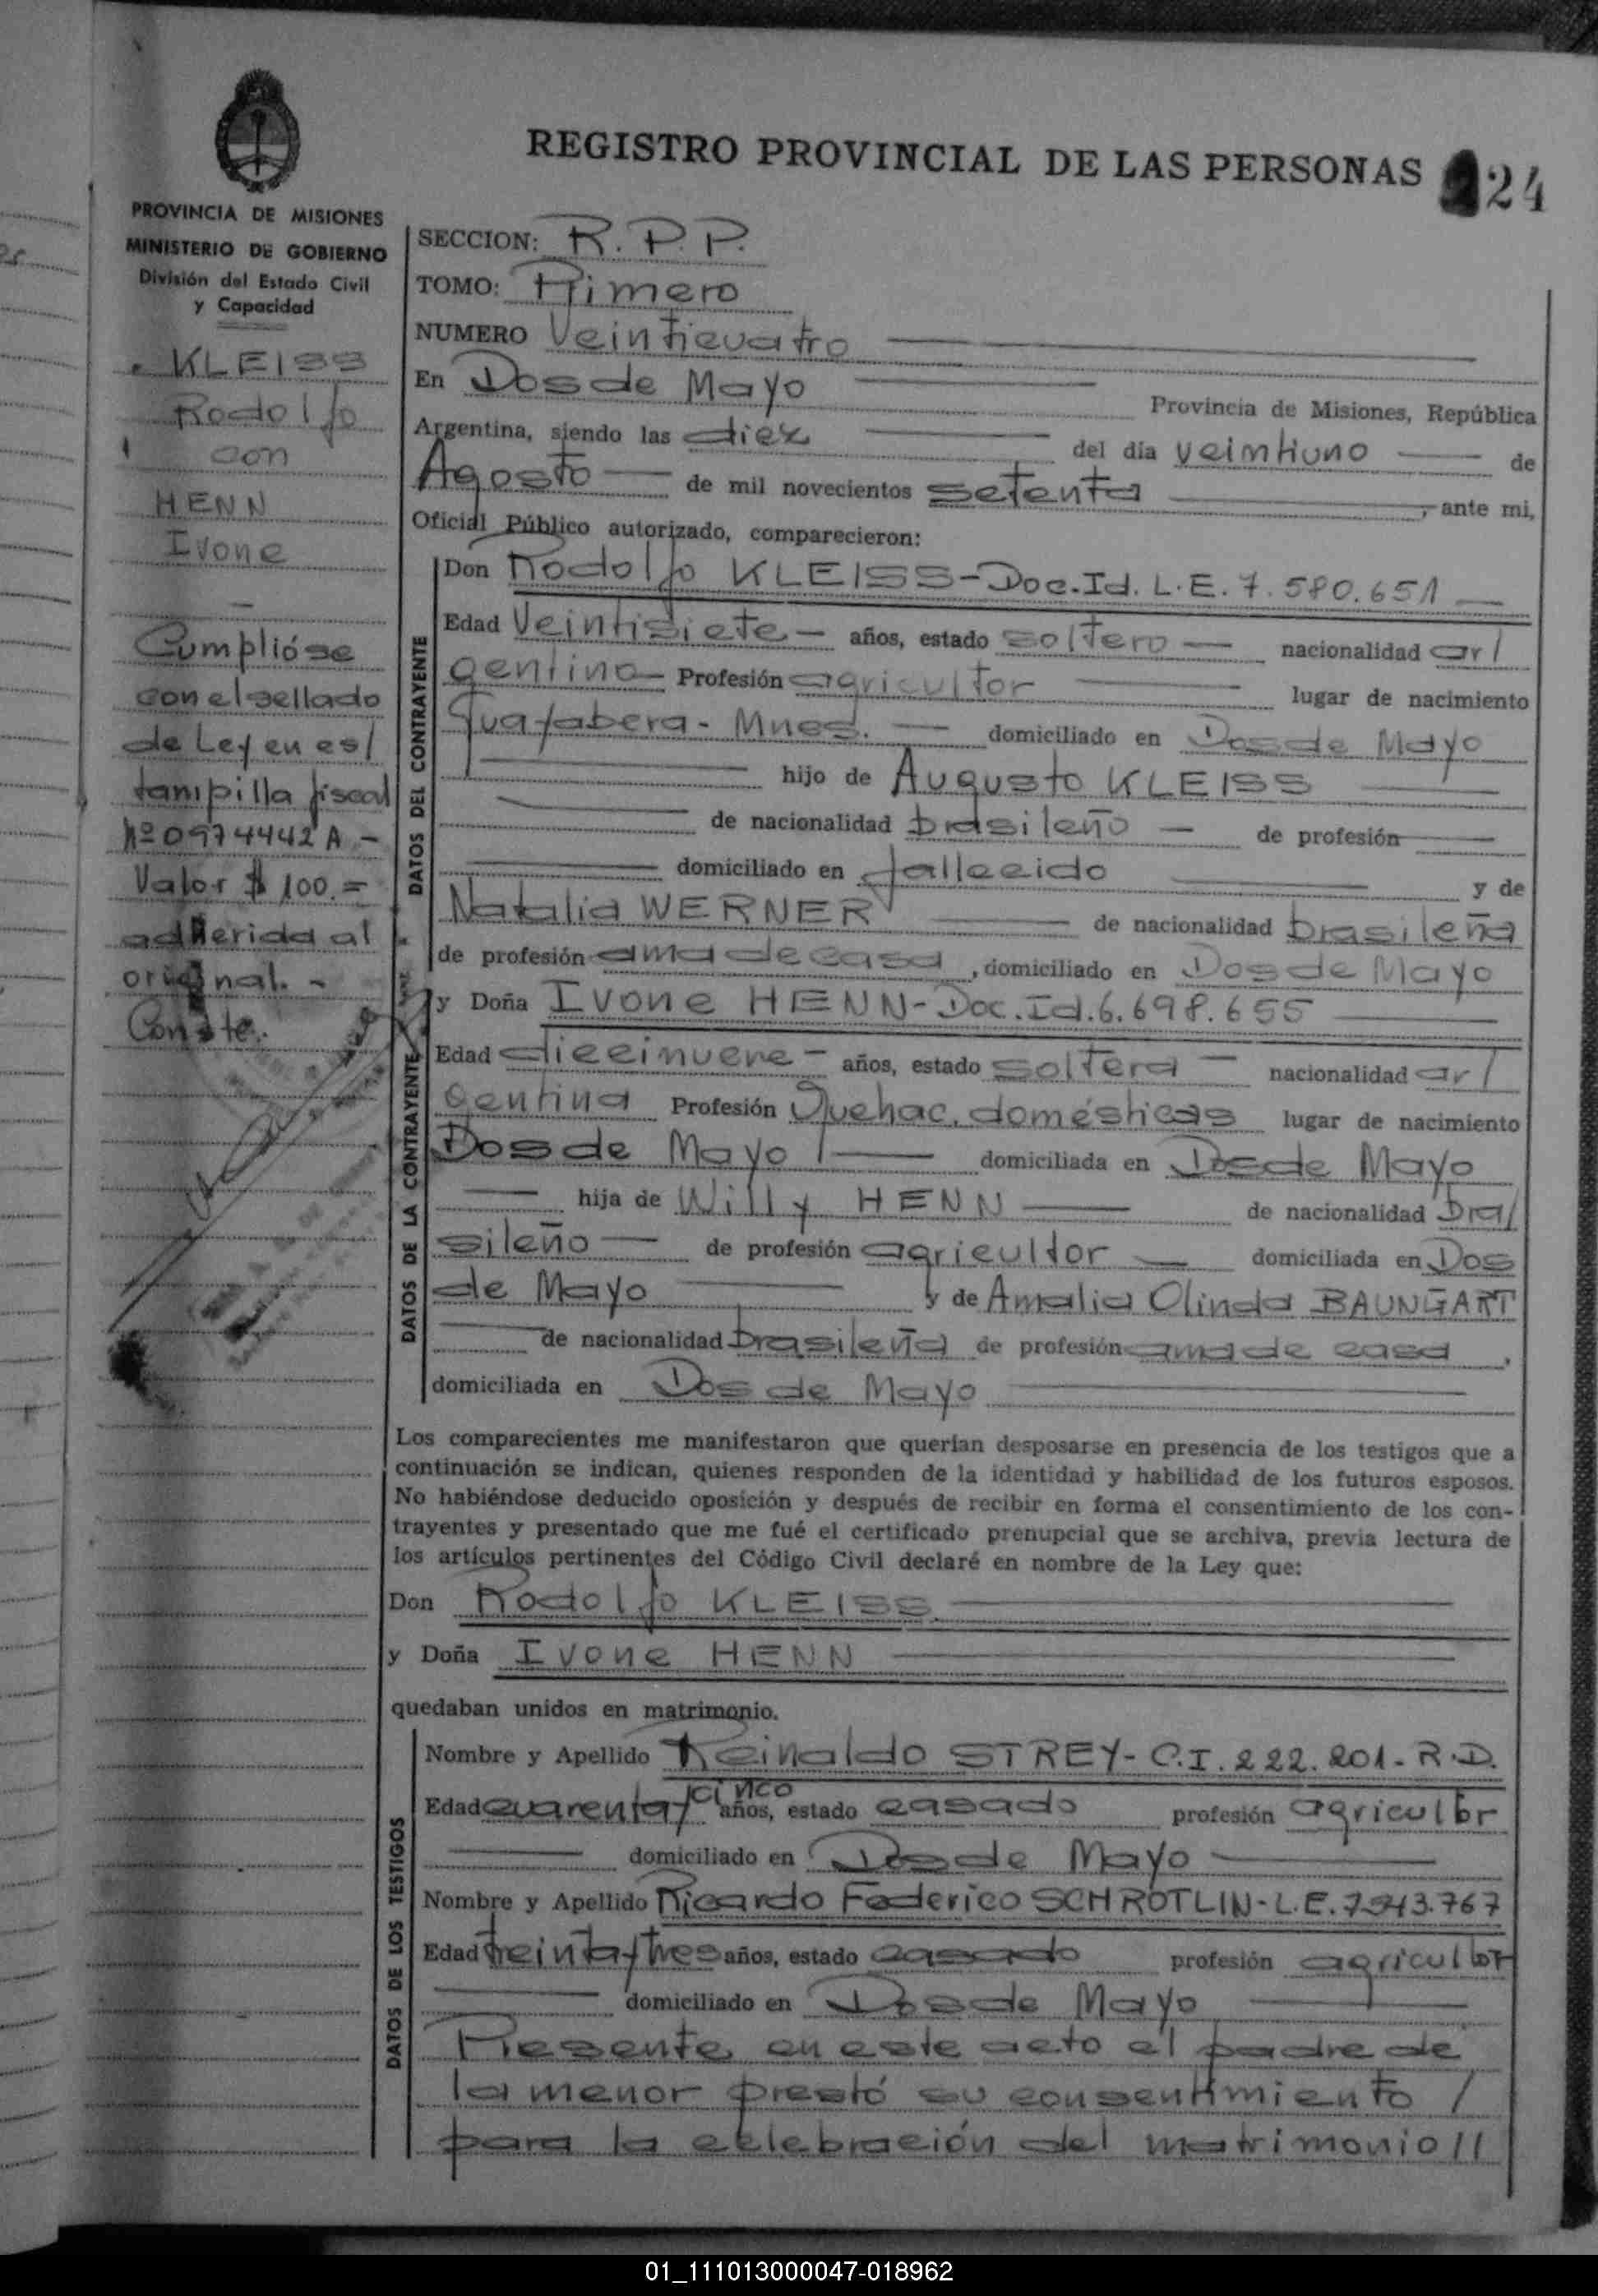 REGISTRO PROVINCIAL DE LAS PERSONAS 24
PROVINCIA DE MISIONES
MINISTERIO DE GOBIERNO
División del Estado Civil
y Capacidad
KLEISS
Rodolfo
con
HENN
Ivone
Cumplióse
con el sellado
de Ley en es/
tampilla fiscal
Nº 0974442 A -
Valor $ 100.=
adherida al
original. -
Conste.
SECCION: R. P. P.
TOMO: Primero
NUMERO Veinticuatro
En Dos de Mayo Provincia de Misiones, República
Argentina, siendo las diez del día veintiuno de
Agosto de mil novecientos setenta, ante mi,
Oficial Público autorizado, comparecieron:
DATOS DEL CONTRAYENTE
Don Rodolfo KLEISS-Doc.Id. L.E. 7.580.651
Edad Veintisiete - años, estado soltero nacionalidad ar/
gentino Profesión agricultor lugar de nacimiento
Guayabera - Mnes. domiciliado en Dos de Mayo
hijo de Augusto KLEISS
de nacionalidad brasileño de profesión
domiciliado en fallecido y de
Natalia WERNER de nacionalidad brasileña
de profesión ama de casa, domiciliado en Dos de Mayo
DATOS DE LA CONTRAYENTE
y Doña Ivone HENN-Doc.Id.6.698.655
Edad diecinueve - años, estado soltera nacionalidad ar/
gentina Profesión Quehac. domésticas lugar de nacimiento
Dos de Mayo domiciliada en Dos de Mayo
hija de Willy HENN de nacionalidad bra/
sileño de profesión agricultor domiciliada en Dos
de Mayo y de Amalia Olinda BAUNGART
de nacionalidad brasileña de profesión ama de casa,
domiciliada en Dos de Mayo
Los comparecientes me manifestaron que querían desposarse en presencia de los testigos que a
continuación se indican, quienes responden de la identidad y habilidad de los futuros esposos.
No habiéndose deducido oposición y después de recibir en forma el consentimiento de los con-
trayentes y presentado que me fué el certificado prenupcial que se archiva, previa lectura de
los artículos pertinentes del Código Civil declaré en nombre de la Ley que:
Don Rodolfo KLEISS
y Doña Ivone HENN
quedaban unidos en matrimonio.
DATOS DE LOS TESTIGOS
Nombre y Apellido Reinaldo STREY - C.I. 222.201 - R.D.
Edad cuarenta y cinco años, estado casado profesión agricultor
domiciliado en Dos de Mayo
Nombre y Apellido Ricardo Federico SCHROTLIN - L.E. 7.543.767
Edad treinta y tres años, estado casado profesión agricultor
domiciliado en Dos de Mayo
Presente en este acto el padre de
la menor prestó su consentimiento /
para la celebración del matrimonio //
01_111013000047-018962